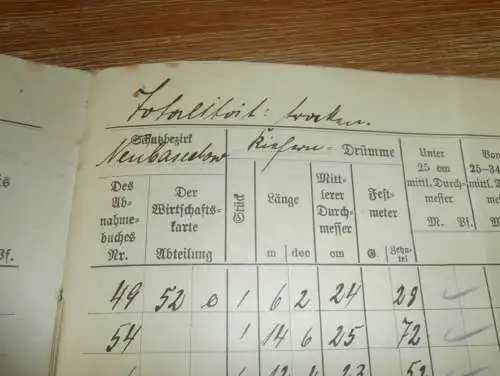 Totalität: trocken.
Schutzbezirk
Neubasedow Kiefern- Drümme
Des Abnahmebuches Nr.
Der Wirtschaftskarte Abteilung
Stück
Länge
m dec
Mittlerer Durchmesser
cm
Festmeter
G. Zehntel
Unter 25 cm mittl. Durchm.
M. Pf.
Von 25-34
mittl. D
M.
Pf.
49 52 e 1 6 2 24 28
54 1 14 6 25 72